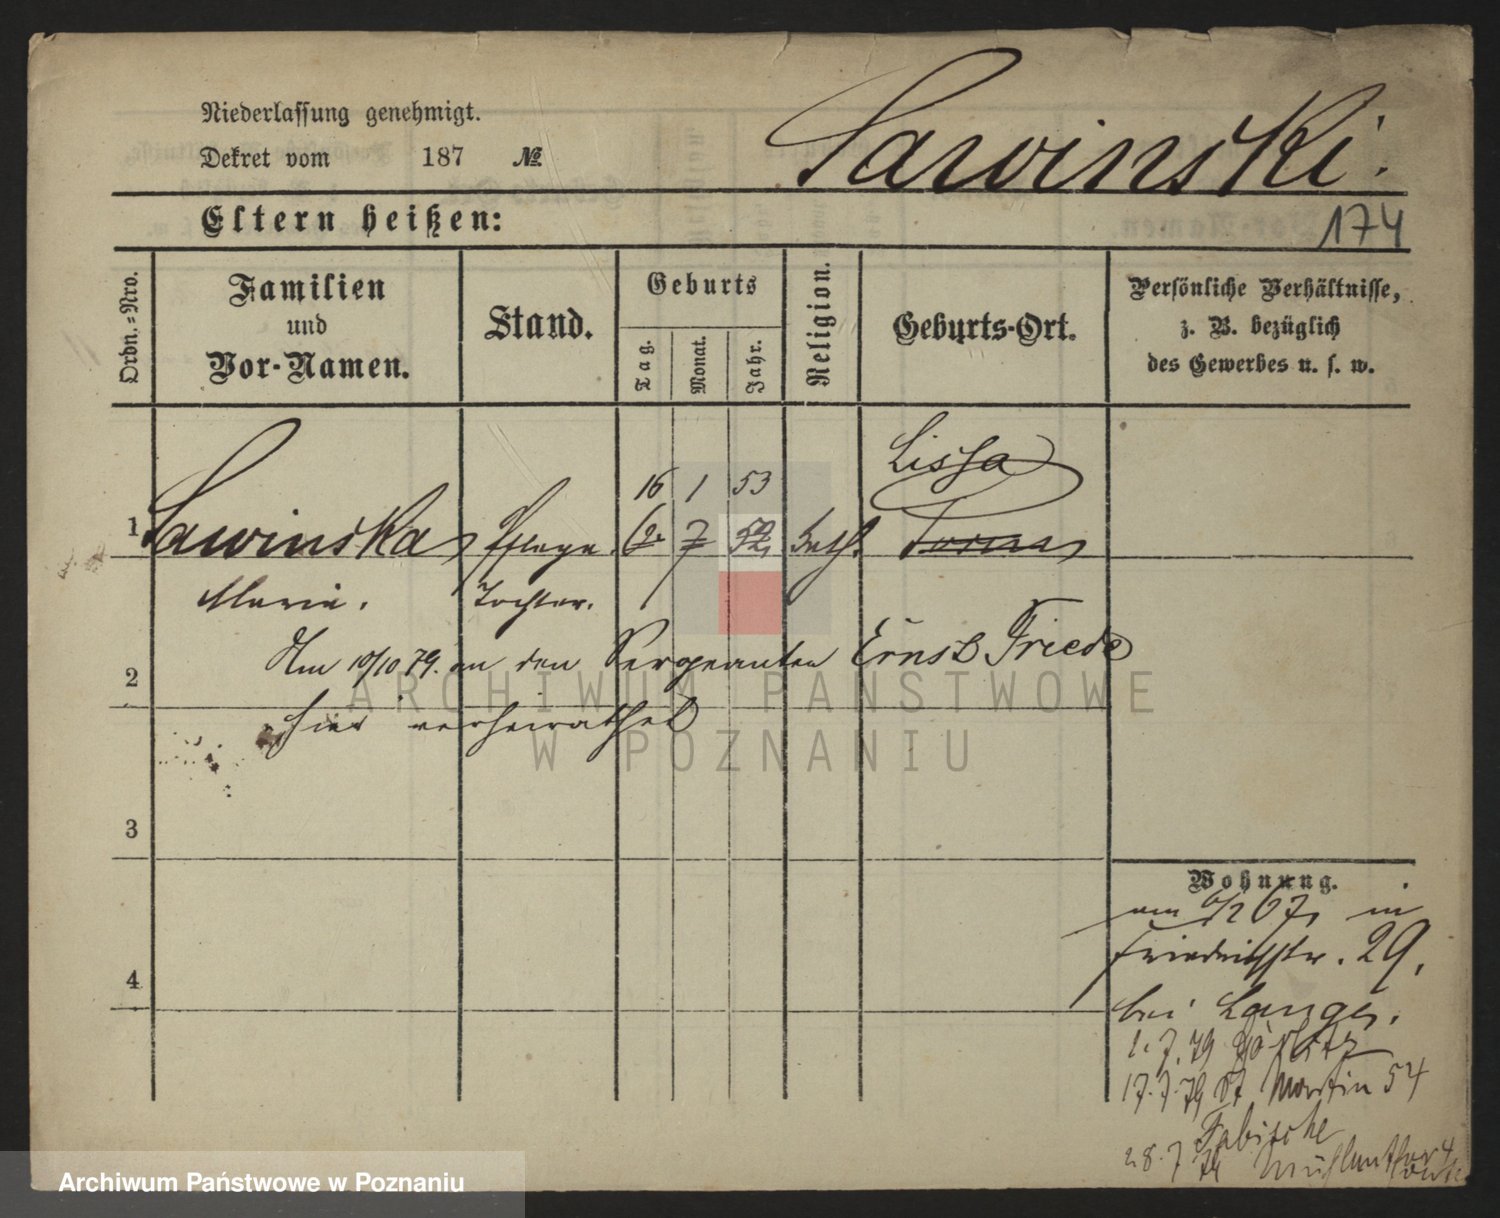 Niederlassung genehmigt.
Dekret vom 187 №
Sawinski.
Eltern heißen:
174
Ordn.-Nro.
Familien
und
Vor-Namen.
Stand.
Geburts
Tag.
Monat.
Jahr.
Religion.
Geburts-Ort.
Persönliche Verhältnisse,
z. B. bezüglich
des Gewerbes u. s. w.
Lissa
16 1 53
1 Sawinska, Pflege 7 52 kath.
Marie. Tochter.
Am 10/10 79. an den Sergeanten Ernst Friede
2
hier verheirathet
3
Wohnung.
am 67, in
Friedrichstr. 29.
4
bei Lange.
1.7.79 Görlitz
17.7.79 St Martin 54
Fabische
28.7 79
ARCHIWUM PAŃSTWOWE
W POZNANIU
Archiwum Państwowe w Poznaniu